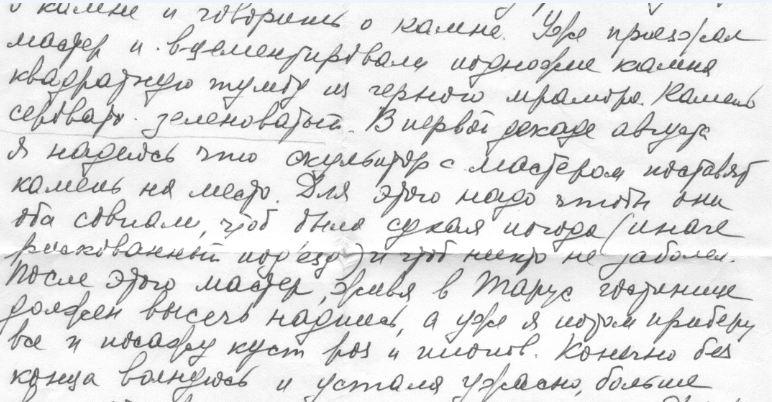 о камне и говоришь о камне. Уже приезжал
мастер и вцементировали подножие камня
квадратную тумбу из черного мрамора. Камень
серовато-зеленоватый. В первой декаде августа
я надеюсь что скульптор с мастером поставят
камень на место. Для этого надо чтобы они
оба совпали, чтоб была сухая погода (иначе
рискованный подъезд) и чтоб никто не заболел.
После этого мастер, живя в Тарус гостинице
должен высечь надпись, а уже я потом приберу
все и посажу куст роз и пионов. Конечно без
конца волнуюсь и устала ужасно, больше